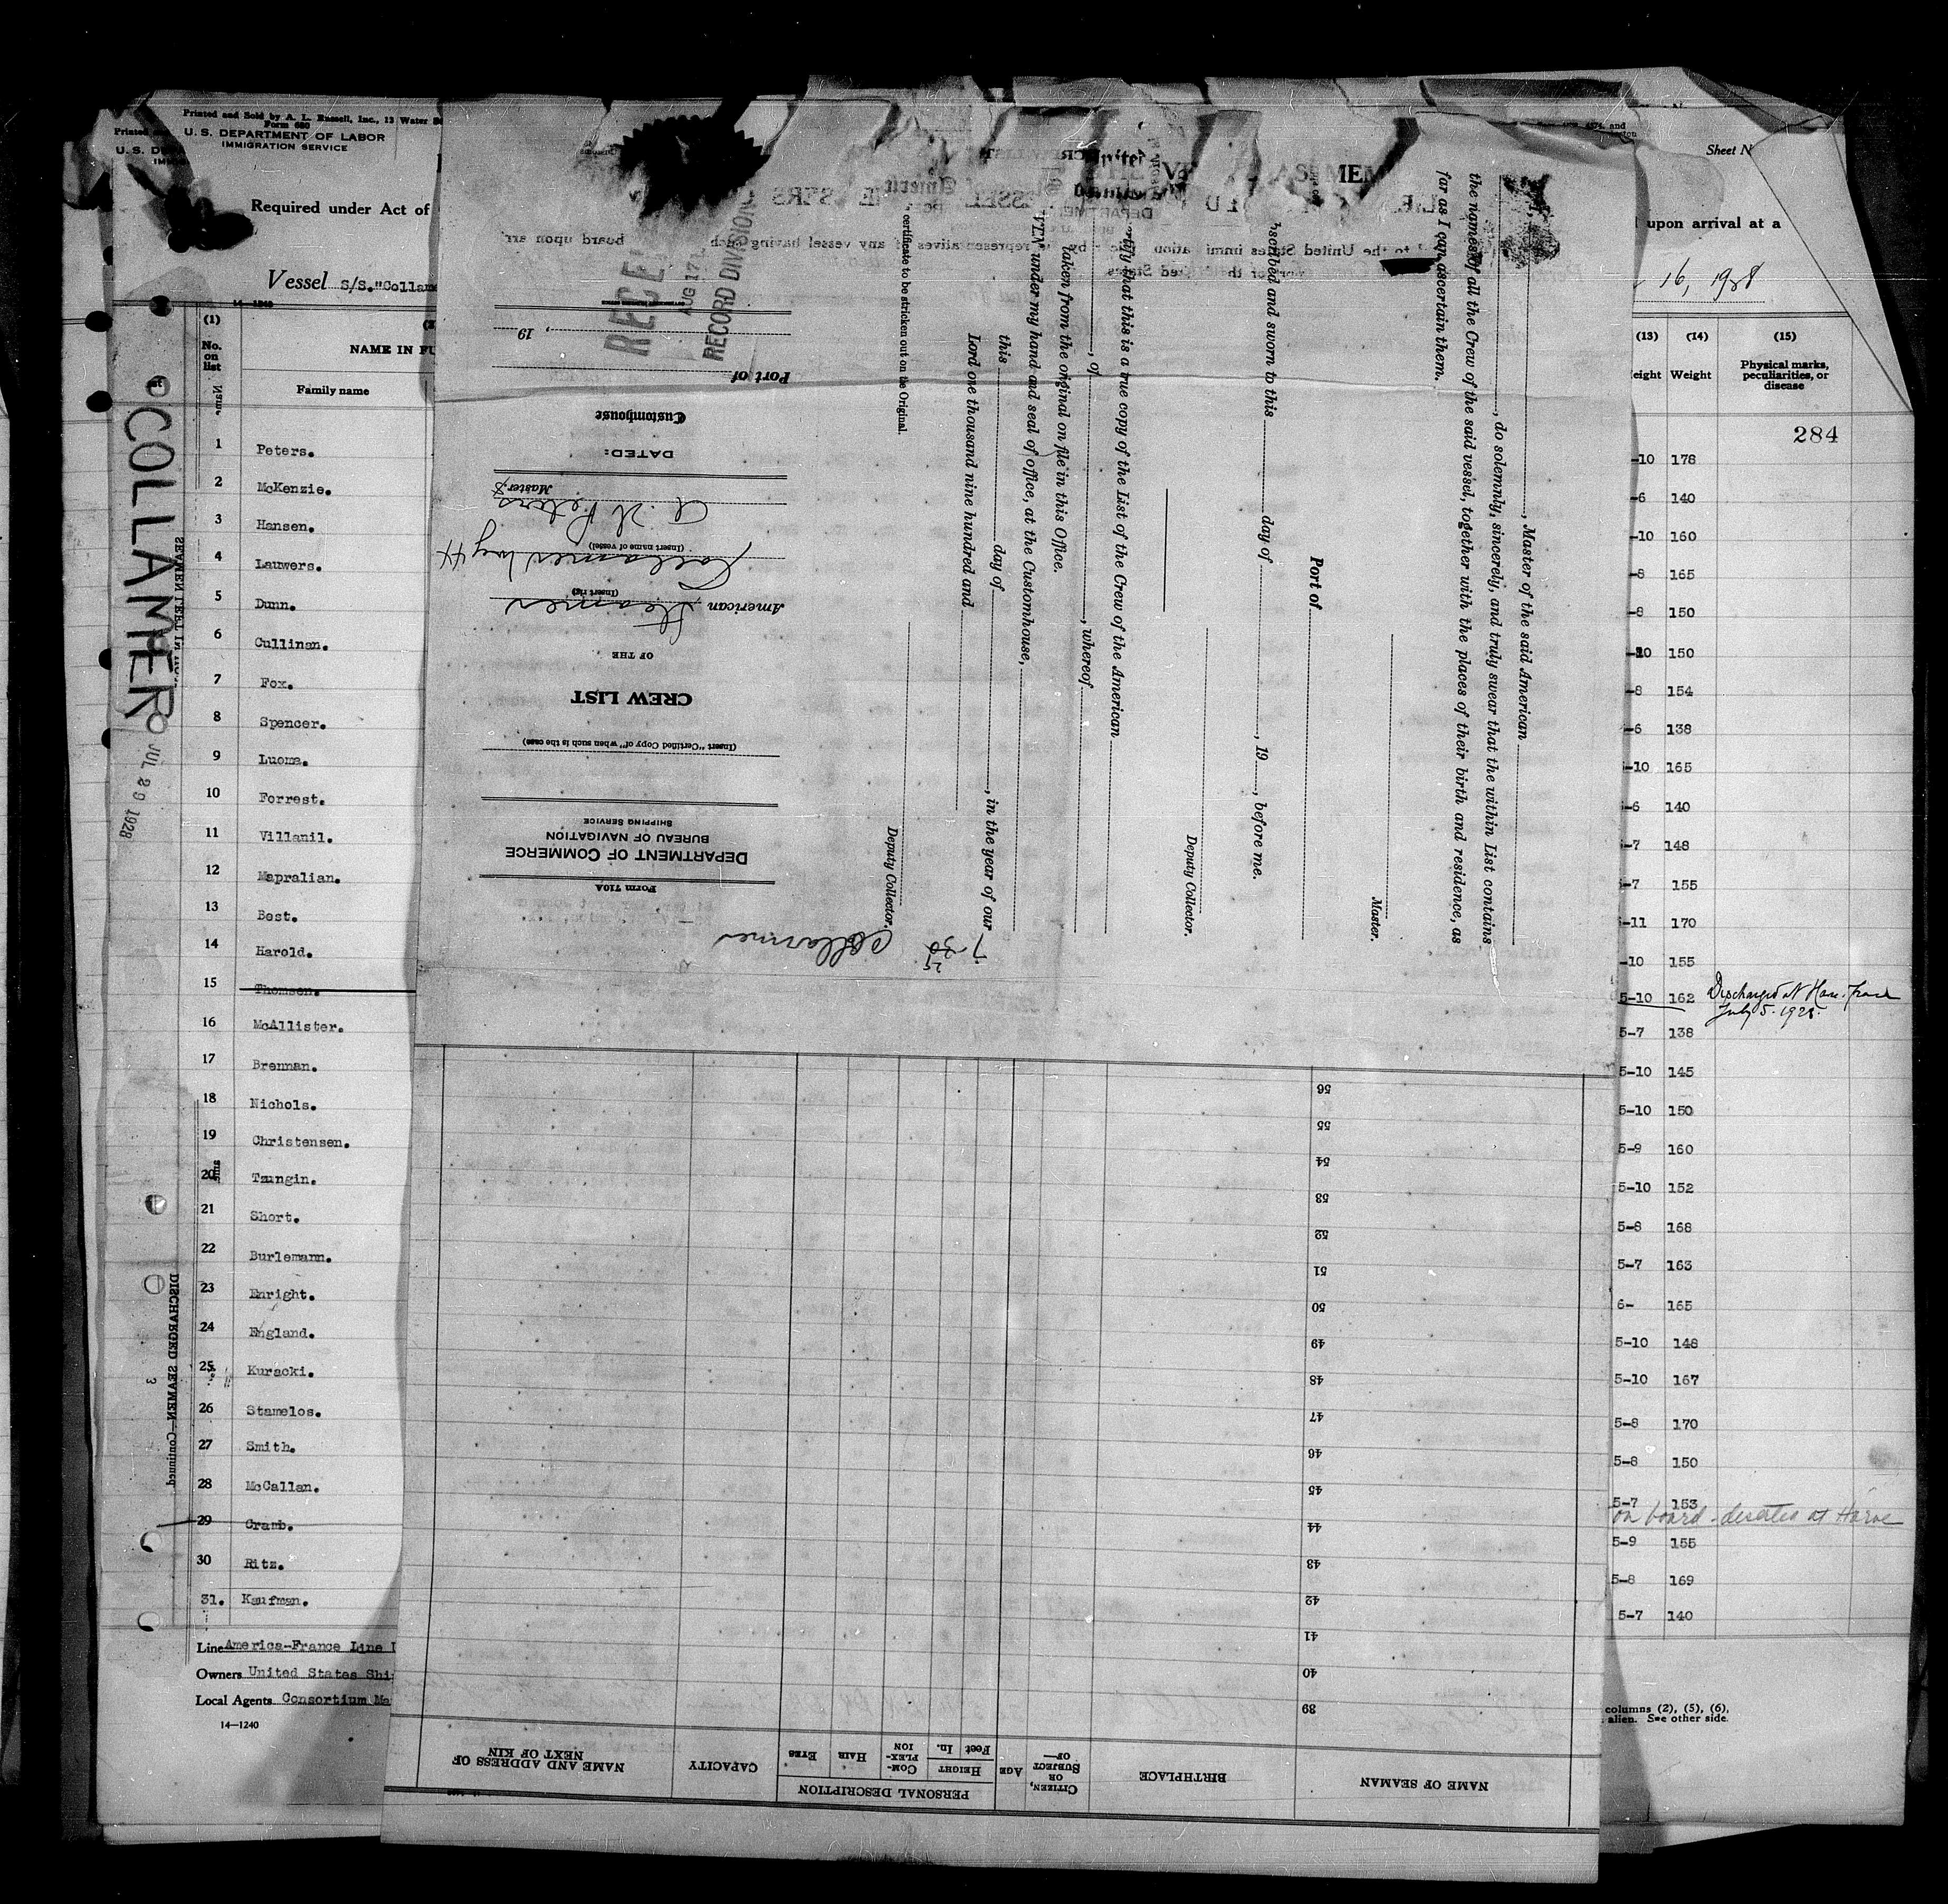 Printed and Sold by A. L. Russell, Inc., 13 Water
Form 680
U. S. DEPARTMENT OF LABOR
IMMIGRATION SERVICE
Required under Act of
Vessel S/S."Collam
14—1240
(1)
No. on list
NAME IN FU
Family name
1 Peters.
2 McKenzie.
3 Hansen.
4 Lauwers.
5 Dunn.
6 Cullinan.
7 Fox.
8 Spencer.
9 Luoma.
10 Forrest.
11 Villanil.
12 Mapralian.
13 Best.
14 Harold.
15 Thomsen.
16 McAllister.
17 Brennan.
18 Nichols.
19 Christensen.
20 Tzungin.
21 Short.
22 Burlemann.
23 Enright.
24 England.
25 Kuracki.
26 Stamelos.
27 Smith.
28 McCallan.
29 Cramb.
30 Ritz.
31. Kaufman.
Line America-France Line
Owners United States Shi
Local Agents Consortium Ma
14—1240
COLLAMER
JUL 29 1928
DISCHARGED SEAMEN—Continued
3
Sheet N
upon arrival at a
16, 1928
(13) (14) (15)
eight Weight Physical marks, peculiarities, or disease
284
-10 178
-6 140
-10 160
-8 165
-8 150
-10 150
-8 154
-6 138
-10 165
-6 140
-7 148
-7 155
-11 170
-10 155
5-10 162 Discharged at Havre France
July 5-1928
5-7 138
5-10 145
5-10 150
5-9 160
5-10 152
5-8 168
5-7 163
6- 165
5-10 148
5-10 167
5-8 170
5-8 150
5-7 153
on board - deserted at Havre
5-9 155
5-8 169
5-7 140
columns (2), (5), (6),
alien. See other side.
, Master of the said American
, do solemnly, sincerely, and truly swear that the within List contains
the names of all the Crew of the said vessel, together with the places of their birth and residence, as
far as I can ascertain them.
Master.
Port of
scribed and sworn to this day of , 19 , before me.
Deputy Collector.
rtify that this is a true copy of the List of the Crew of the American
, of , whereof
taken from the original on file in this Office.
VEN under my hand and seal of office, at the Customhouse,
this day of , in the year of our
Lord one thousand nine hundred and
Deputy Collector.
certificate to be stricken out on the Original.
Collamer
7-30
Form 710A
DEPARTMENT OF COMMERCE
BUREAU OF NAVIGATION
SHIPPING SERVICE
(Insert "Certified Copy of" when such is the case)
CREW LIST
OF THE
American Steamer
(Insert rig)
Collamer
(Insert name of vessel)
A. H. Peters
Master.
DATED:
Customhouse
Port of
, 19
RECE
AUG 17
RECORD DIVISION
NAME OF SEAMAN
BIRTHPLACE
CITIZEN, OR SUBJECT OF—
AGE
PERSONAL DESCRIPTION
HEIGHT
Feet In.
COM-PLEX-ION
HAIR
EYES
CAPACITY
NAME AND ADDRESS OF NEXT OF KIN
39
40
41
42
43
44
45
46
47
48
49
50
51
52
53
54
55
56